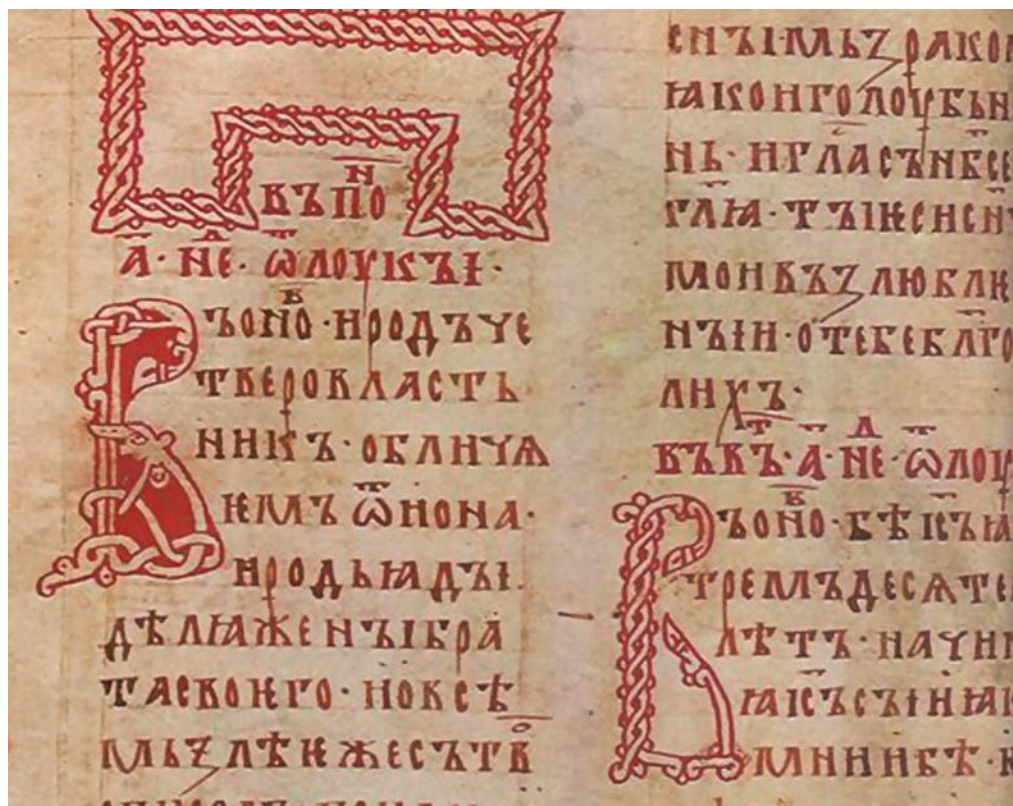 ВЪПОⷩ҇
А҃· НЕⷣ· Ѿ ЛОУКЪІ·
ВЪОНОⷡ· ИРОДЪЧЕ
ТВЕРОВЛАСТЬ
НИКЪ· ОБЛИЧѦ
ѤМЪ ѾИОНА·
ИРОДЬꙖДЪІ
ДѢЛꙖЖЕНЪІБРА
ТАСВОѤГО· ИОВСѢ
МЬꙀЛѢѤЖЕСЪТВⷪ
ЕНЪІМЬꙀРАКО
ꙖКОИГОЛОУБЬИ
НЬ· ИГЛАСЪНБ҃СЕ
ГЛ҃Ꙗ· ТЪІѤСИСН҃
МОИВЪꙀЛЮБЛѤ
НЪІИ· ОТЕБЕБЛ҃ГО
ЛИХЪ·
ВЪВЪⷮ· А҃· НЕⷣ· ѾЛОУ
ВЪОНОⷡ· БѢІС҃ЪꙖ
ТРЕМЪДЕСѦТЕ
ЛѢТЪ· НАЧИН
ꙖІС҃ЪСЪІИꙖК
МНИИБѢ·